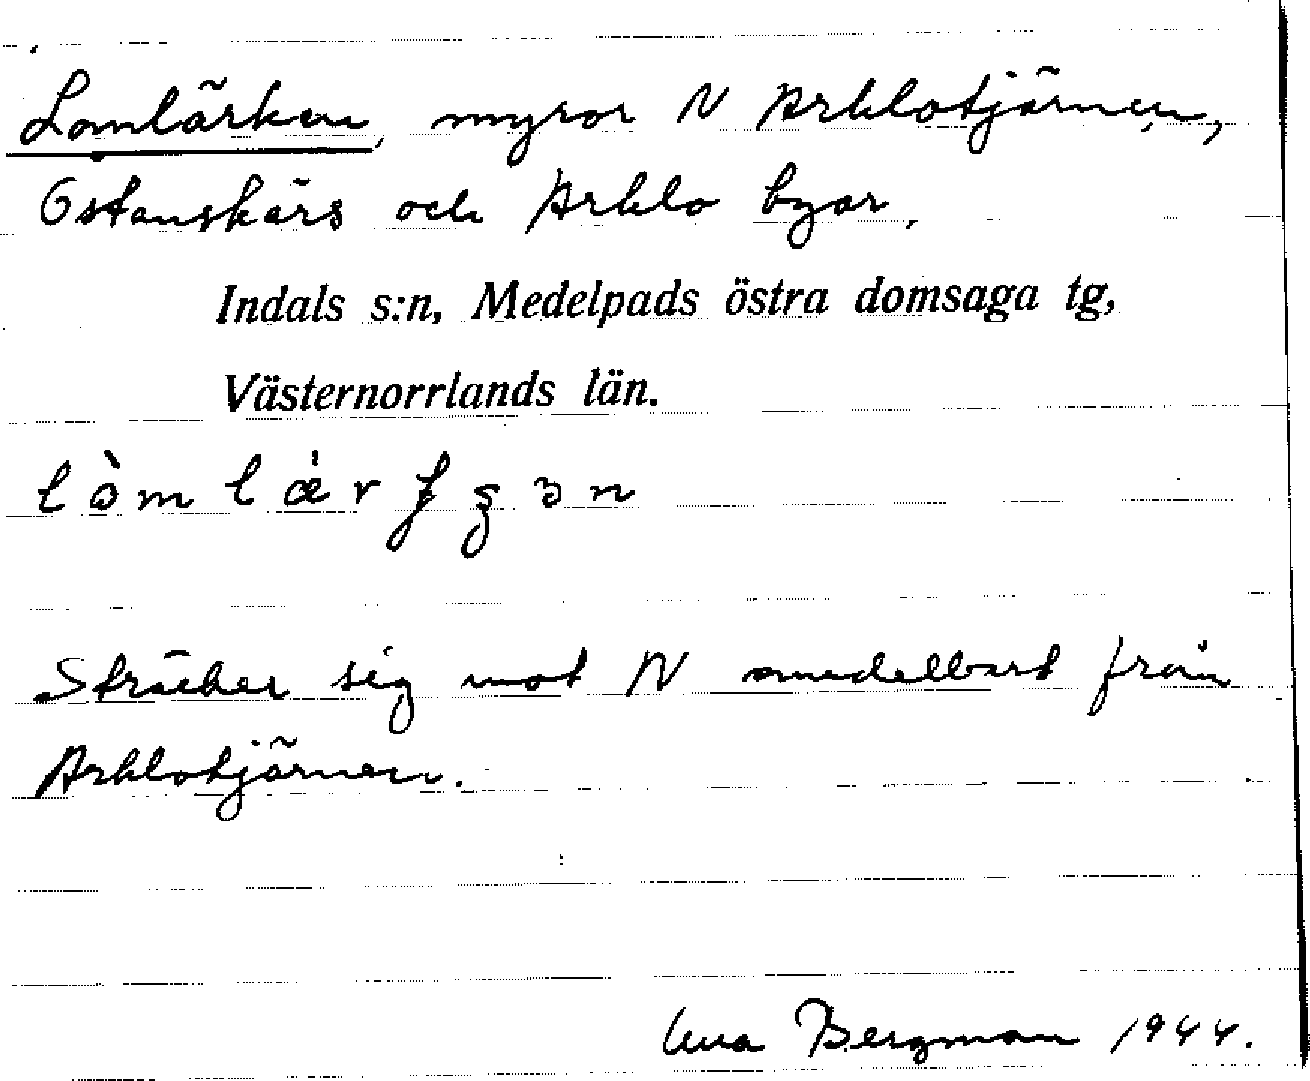 Lomlärken, myror N Arklotjärnen,
Östanskärs och Arklo byar.
Indals s:n, Medelpads östra domsaga tg,
Västernorrlands län.
Sträcker sig mot N omedelbart från
Arklotjärnen.
Bergman 1944.